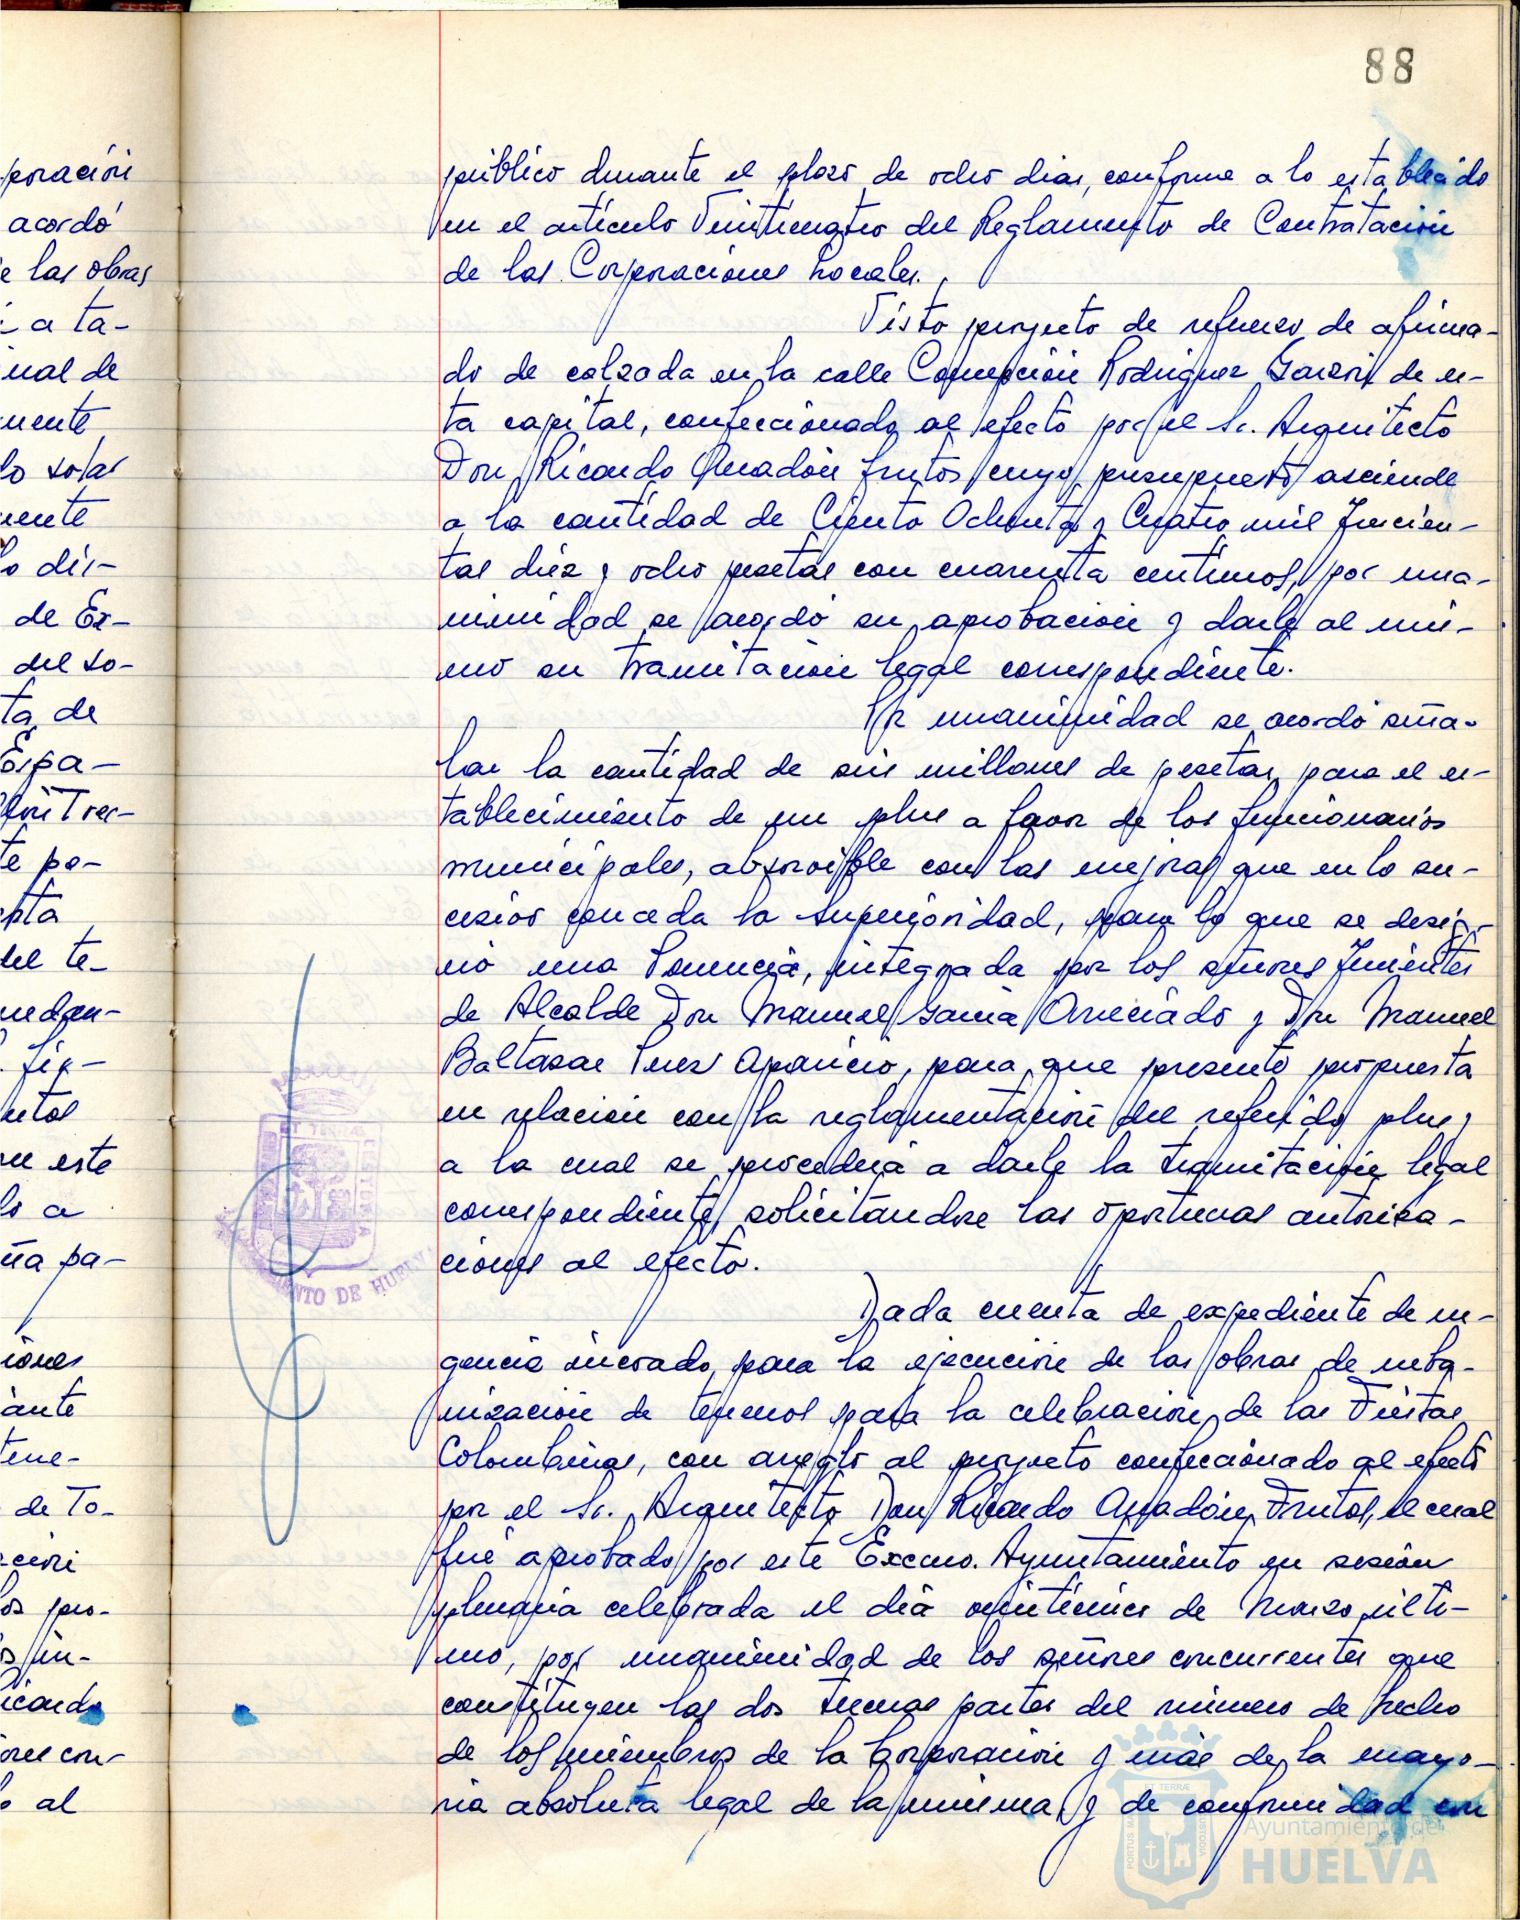 88
poración
acordó
e las obras
a ta-
ual de
mente
lo solar
mente
lo dis-
de Ex-
del so-
ta de
Espa-
te po-
del te-
quedan-
Fig-
este
lo a
ña pa-
iones
ante
tene-
de To-
ción
los pro-
icardo
ores con-
al
público durante el plazo de ocho dias, conforme a lo establecido
en el artículo Veinticuatro del Reglamento de Contratación
de las Corporaciones Locales.
Visto proyecto de refuerzo de afirma-
do de calzada en la calle Concepción Rodriguez Garzón de es-
ta capital, confeccionado al efecto por el Sr. Arquitecto
Don Ricardo Anadón Frutos cuyo presupuesto asciende
a la cantidad de Ciento Ochenta y Cuatro mil Trescien-
tas diez y ocho pesetas con cuarenta centimos, por una-
nimidad se acordó su aprobación y darle al mis-
mo su tramitación legal correspondiente.
Por unanimidad se acordó seña-
lar la cantidad de seis millones de pesetas para el es-
tablecimiento de un plus a favor de los funcionarios
municipales, absorvible con las mejoras que en lo su-
cesivo conceda la Superioridad, para lo que se desig-
nó una Ponencia, integrada por los señores Tenientes
de Alcalde Don Manuel Garcia Orreciado y Don Manuel
Baltasar Perez Aparicio, para que presente propuesta
en relación con la reglamentación del referido plus,
a la cual se procederá a darle la tramitación legal
correspondiente, solicitandose las oportunas autoriza-
ciones al efecto.
Dada cuenta de expediente de ur-
gencia incoado, para la ejecución de las obras de urba-
nización de terrenos para la celebración de las Fiestas
Colombinas, con arreglo al proyecto confeccionado al efecto
por el Sr. Arquitecto Don Ricardo Anadón Frutos, el cual
fué aprobado por este Excmo. Ayuntamiento en sesión
plenaria celebrada el día veinticinco de Marzo ulti-
mo, por unanimidad de los señores concurrentes que
constituyen las dos terceras partes del número de hecho
de los miembros de la Corporación y más de la mayo-
ria absoluta legal de la misma, y de conformidad con
ET TERRÆ CUSTODIA
AYUNTAMIENTO DE HUELVA
PORTUS MARIS ET TERRÆ CUSTODIA
Ayuntamiento de
HUELVA